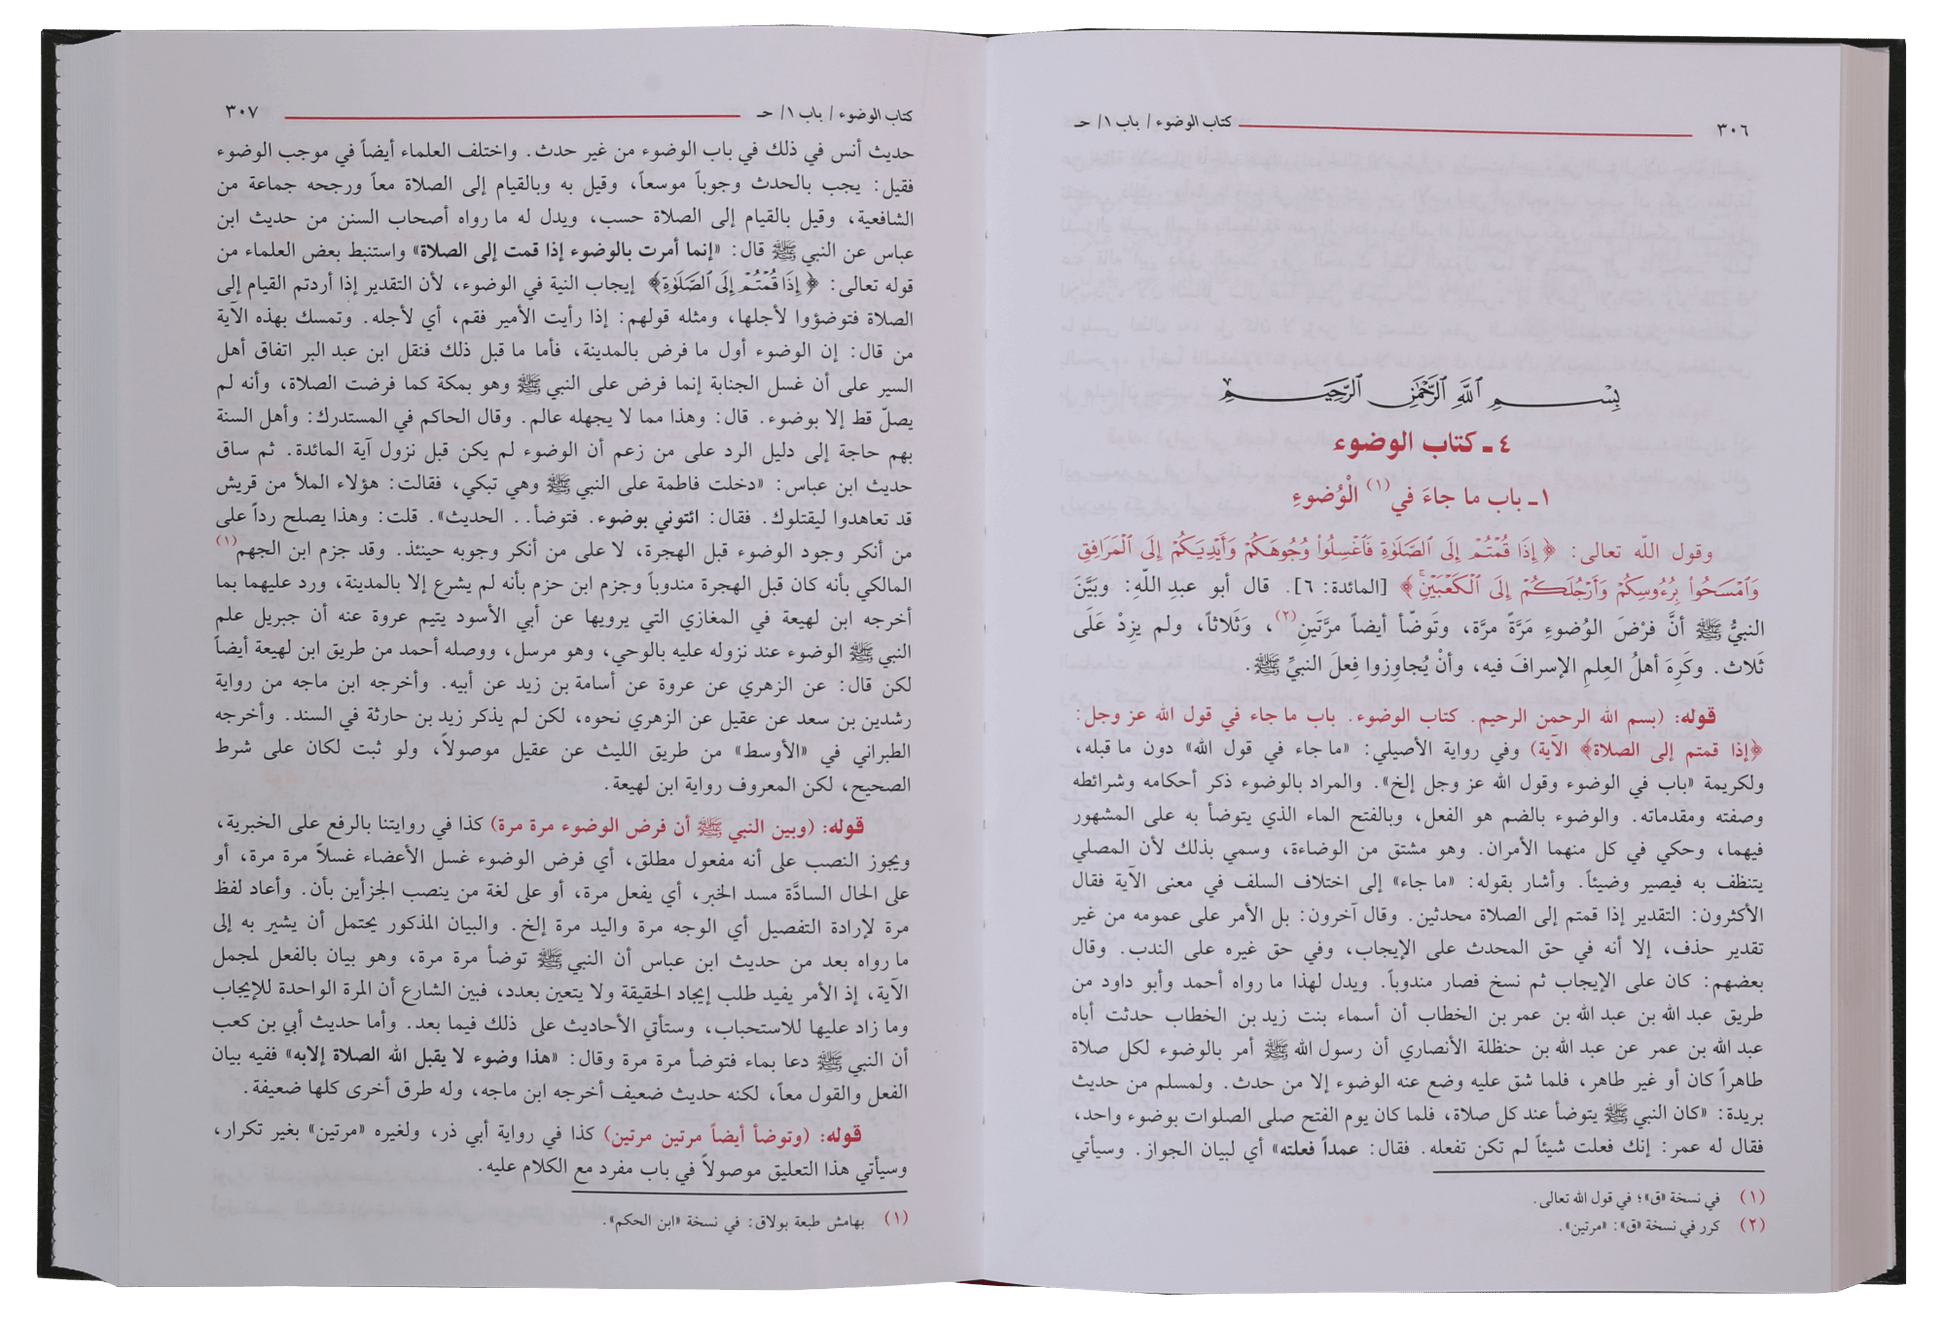 ٣٠٦ كتاب الوضوء / باب ١/ حـ
بِسْمِ ٱللَّهِ ٱلرَّحْمَٰنِ ٱلرَّحِيمِ
٤ ـ كتاب الوضوء
١ ـ باب ما جاءَ في(١) الْوُضوءِ
وقول اللّه تعالى: ﴿إِذَا قُمْتُمْ إِلَى ٱلصَّلَوٰةِ فَٱغْسِلُوا۟ وُجُوهَكُمْ وَأَيْدِيَكُمْ إِلَى ٱلْمَرَافِقِ
وَٱمْسَحُوا۟ بِرُءُوسِكُمْ وَأَرْجُلَكُمْ إِلَى ٱلْكَعْبَيْنِ﴾ [المائدة: ٦]. قال أبو عبدِ اللّهِ: وبَيَّنَ
النبيُّ ﷺ أنَّ فرْضَ الوُضوءِ مَرَّةً مرَّة، وتَوضّأ أيضاً مرَّتَينِ(٢)، وَثَلاثاً، ولم يزِدْ عَلَى
ثَلاث. وكَرِهَ أهلُ العِلمِ الإسرافَ فيه، وأنْ يُجاوِزوا فِعلَ النبيِّ ﷺ.
قوله: (بسم الله الرحمن الرحيم. كتاب الوضوء. باب ما جاء في قول الله عز وجل:
﴿إذا قمتم إلى الصلاة﴾ الآية) وفي رواية الأصيلي: «ما جاء في قول الله» دون ما قبله،
ولكريمة «باب في الوضوء وقول الله عز وجل إلخ». والمراد بالوضوء ذكر أحكامه وشرائطه
وصفته ومقدماته. والوضوء بالضم هو الفعل، وبالفتح الماء الذي يتوضأ به على المشهور
فيهما، وحكي في كل منهما الأمران. وهو مشتق من الوضاءة، وسمي بذلك لأن المصلي
يتنظف به فيصير وضيئاً. وأشار بقوله: «ما جاء» إلى اختلاف السلف في معنى الآية فقال
الأكثرون: التقدير إذا قمتم إلى الصلاة محدثين. وقال آخرون: بل الأمر على عمومه من غير
تقدير حذف، إلا أنه في حق المحدث على الإيجاب، وفي حق غيره على الندب. وقال
بعضهم: كان على الإيجاب ثم نسخ فصار مندوباً. ويدل لهذا ما رواه أحمد وأبو داود من
طريق عبد الله بن عبد الله بن عمر بن الخطاب أن أسماء بنت زيد بن الخطاب حدثت أباه
عبد الله بن عمر عن عبد الله بن حنظلة الأنصاري أن رسول الله ﷺ أمر بالوضوء لكل صلاة
طاهراً كان أو غير طاهر، فلما شق عليه وضع عنه الوضوء إلا من حدث. ولمسلم من حديث
بريدة: «كان النبي ﷺ يتوضأ عند كل صلاة، فلما كان يوم الفتح صلى الصلوات بوضوء واحد،
فقال له عمر: إنك فعلت شيئاً لم تكن تفعله. فقال: عمداً فعلته» أي لبيان الجواز. وسيأتي
(١) في نسخة «ق»؛ في قول الله تعالى.
(٢) كرر في نسخة «ق»: «مرتين».
كتاب الوضوء / باب ١/ حـ ٣٠٧
حديث أنس في ذلك في باب الوضوء من غير حدث. واختلف العلماء أيضاً في موجب الوضوء
فقيل: يجب بالحدث وجوباً موسعاً، وقيل به وبالقيام إلى الصلاة معاً ورجحه جماعة من
الشافعية، وقيل بالقيام إلى الصلاة حسب، ويدل له ما رواه أصحاب السنن من حديث ابن
عباس عن النبي ﷺ قال: «إنما أمرت بالوضوء إذا قمت إلى الصلاة» واستنبط بعض العلماء من
قوله تعالى: ﴿إِذَا قُمْتُمْ إِلَى ٱلصَّلَوٰةِ﴾ إيجاب النية في الوضوء، لأن التقدير إذا أردتم القيام إلى
الصلاة فتوضؤوا لأجلها، ومثله قولهم: إذا رأيت الأمير فقم، أي لأجله. وتمسك بهذه الآية
من قال: إن الوضوء أول ما فرض بالمدينة، فأما ما قبل ذلك فنقل ابن عبد البر اتفاق أهل
السير على أن غسل الجنابة إنما فرض على النبي ﷺ وهو بمكة كما فرضت الصلاة، وأنه لم
يصلّ قط إلا بوضوء. قال: وهذا مما لا يجهله عالم. وقال الحاكم في المستدرك: وأهل السنة
بهم حاجة إلى دليل الرد على من زعم أن الوضوء لم يكن قبل نزول آية المائدة. ثم ساق
حديث ابن عباس: «دخلت فاطمة على النبي ﷺ وهي تبكي، فقالت: هؤلاء الملأ من قريش
قد تعاهدوا ليقتلوك. فقال: ائتوني بوضوء. فتوضأ.. الحديث». قلت: وهذا يصلح رداً على
من أنكر وجود الوضوء قبل الهجرة، لا على من أنكر وجوبه حينئذ. وقد جزم ابن الجهم(١)
المالكي بأنه كان قبل الهجرة مندوباً وجزم ابن حزم بأنه لم يشرع إلا بالمدينة، ورد عليهما بما
أخرجه ابن لهيعة في المغازي التي يرويها عن أبي الأسود يتيم عروة عنه أن جبريل علم
النبي ﷺ الوضوء عند نزوله عليه بالوحي، وهو مرسل، ووصله أحمد من طريق ابن لهيعة أيضاً
لكن قال: عن الزهري عن عروة عن أسامة بن زيد عن أبيه. وأخرجه ابن ماجه من رواية
رشدين بن سعد عن عقيل عن الزهري نحوه، لكن لم يذكر زيد بن حارثة في السند. وأخرجه
الطبراني في «الأوسط» من طريق الليث عن عقيل موصولاً، ولو ثبت لكان على شرط
الصحيح، لكن المعروف رواية ابن لهيعة.
قوله: (وبين النبي ﷺ أن فرض الوضوء مرة مرة) كذا في روايتنا بالرفع على الخبرية،
ويجوز النصب على أنه مفعول مطلق، أي فرض الوضوء غسل الأعضاء غسلاً مرة مرة، أو
على الحال السادَّة مسد الخبر، أي يفعل مرة، أو على لغة من ينصب الجزأين بأن. وأعاد لفظ
مرة لإرادة التفصيل أي الوجه مرة واليد مرة إلخ. والبيان المذكور يحتمل أن يشير به إلى
ما رواه بعد من حديث ابن عباس أن النبي ﷺ توضأ مرة مرة، وهو بيان بالفعل لمجمل
الآية، إذ الأمر يفيد طلب إيجاد الحقيقة ولا يتعين بعدد، فبين الشارع أن المرة الواحدة للإيجاب
وما زاد عليها للاستحباب، وستأتي الأحاديث على ذلك فيما بعد. وأما حديث أبي بن كعب
أن النبي ﷺ دعا بماء فتوضأ مرة مرة وقال: «هذا وضوء لا يقبل الله الصلاة إلا به» ففيه بيان
الفعل والقول معاً، لكنه حديث ضعيف أخرجه ابن ماجه، وله طرق أخرى كلها ضعيفة.
قوله: (وتوضأ أيضاً مرتين مرتين) كذا في رواية أبي ذر، ولغيره «مرتين» بغير تكرار،
وسيأتي هذا التعليق موصولاً في باب مفرد مع الكلام عليه.
(١) بهامش طبعة بولاق: في نسخة «ابن الحكم».